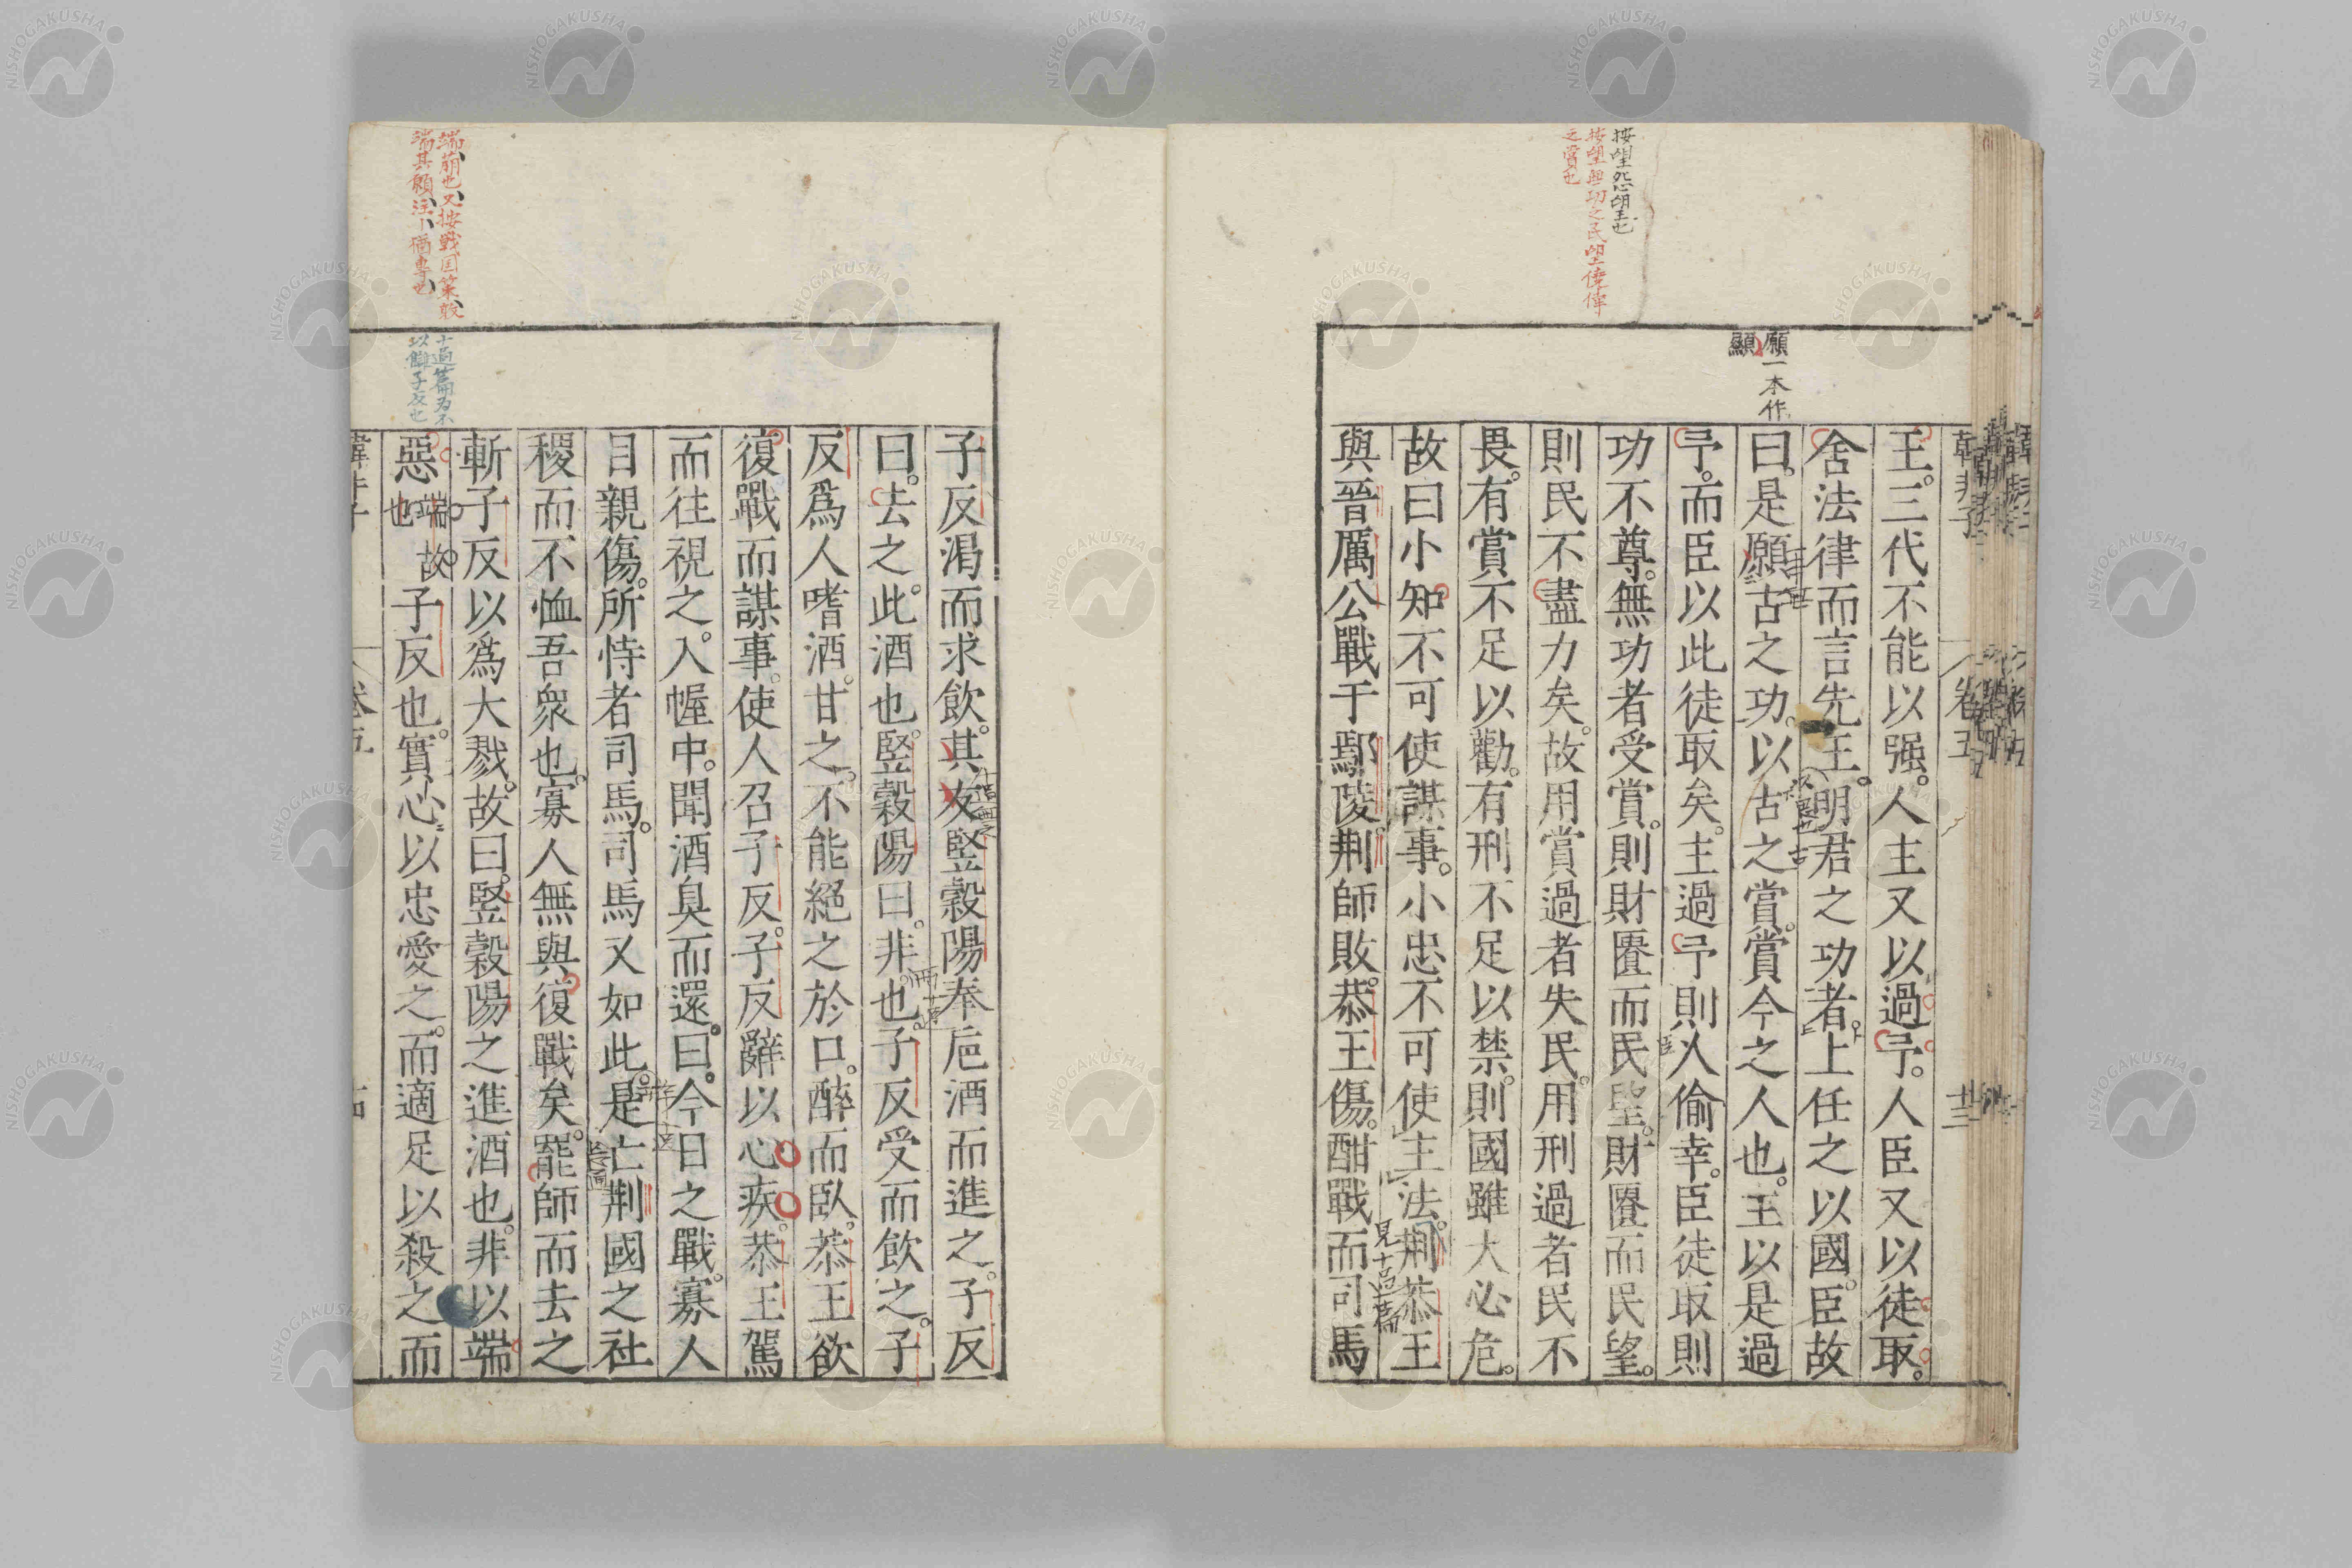 按望怨朢也
按望無功之民望僥倖
之賞也
願一本作
顯
韓非子 卷五 廿三
王。三代不能以强。人主又以過予。人臣又以徒取。
舍法律而言先王。明君之功者。上任之以國。臣故
曰。是願古之功。以古之賞。賞今之人也。主以是過
予。而臣以此徒取矣。主過予則人偷幸。臣徒取則
功不尊。無功者受賞。則財匱而民望。財匱而民望。
則民不盡力矣。故用賞過者失民。用刑過者民不
畏。有賞不足以勸。有刑不足以禁。則國雖大必危。
故曰小知不可使謀事。小忠不可使主法。荆恭王
見十過篇
與晉厲公戰于鄢陵。荆師敗。恭王傷。酣戰而司馬
子反渴而求飲。其友竪穀陽奉卮酒而進之。子反
曰。去之。此酒也。竪穀陽曰。非也。子反受而飲之。子
反爲人嗜酒。甘之。不能絕之於口。醉而臥。恭王欲
復戰而謀事。使人召子反。子反辭以心疾。恭王駕
而往視之。入幄中。聞酒臭而還。曰。今日之戰。寡人
目親傷。所恃者司馬。司馬又如此。是亡荆國之社
稷而不恤吾衆也。寡人無與復戰矣。罷師而去之
斬子反以爲大戮。故曰。竪穀陽之進酒也。非以端
惡 端故也 子反也。實心以忠愛之。而適足以殺之而
端萠也又按戰国策敢
端其願注丨猶專也
十過篇為不
以讎子反也
韓非子 卷五